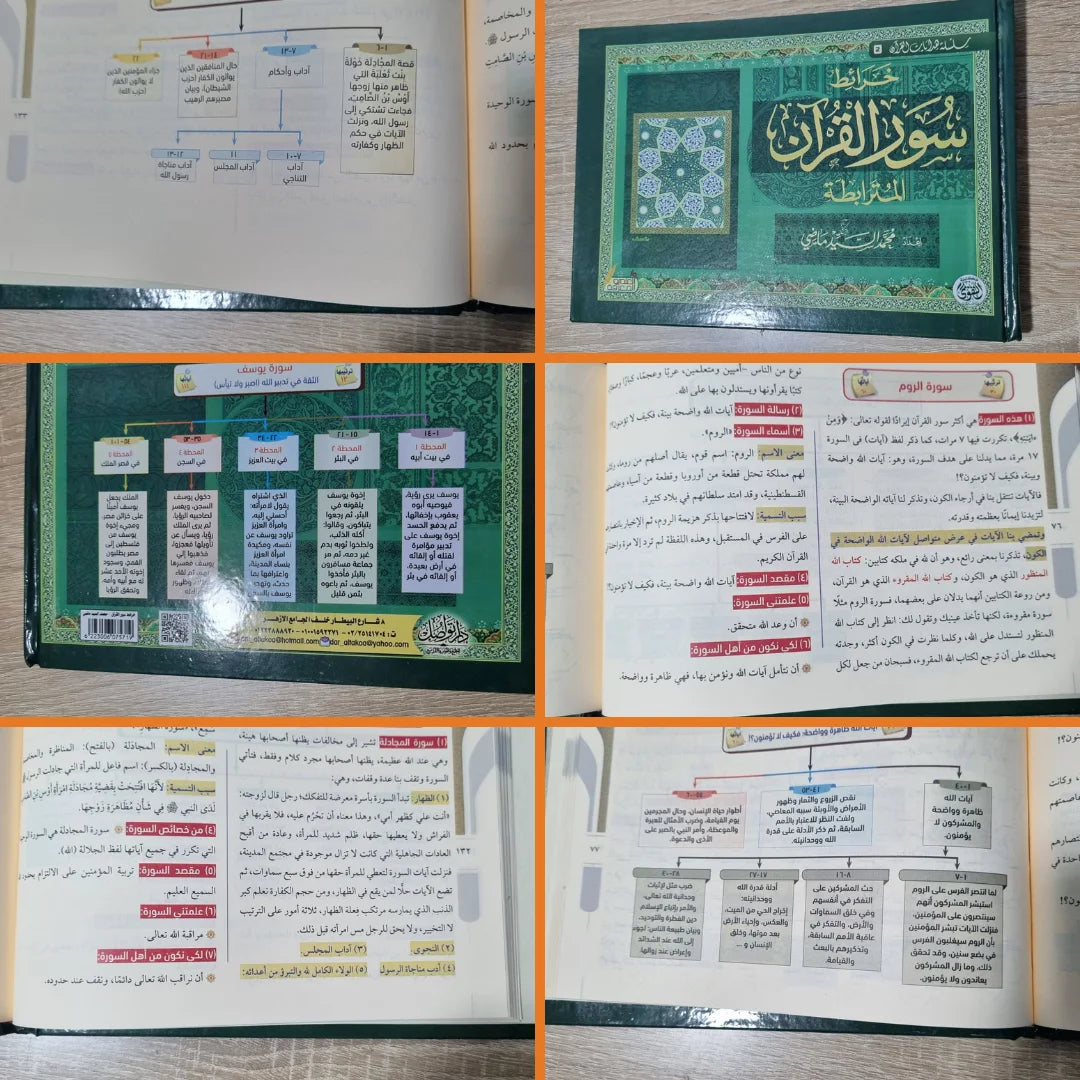 والمخاصمة،
الرسول ﷺ.
بْنِ الصَّامِتِ
سورة الوحيدة
بحدود الله
١٣٣
١-٦
قصة المجادلة خولة
بنت ثعلبة التي
ظاهر منها زوجها
أوس بن الصامت،
فجاءت تشتكي إلى
رسول الله، ونزلت
الآيات في حكم
الظهار وكفارته
٧-١٣
آداب وأحكام
١٤-٢١
حال المنافقين الذين
يوالون الكفار (حزب
الشيطان)، وبيان
مصيرهم الرهيب
٢٢
جزاء المؤمنين الذين
لا يوالون الكفار
(حزب الله)
٧-١٠
آداب
التناجي
١١
آداب المجلس
١٢-١٣
آداب مناجاة
رسول الله
سلسلة هدايات القرآن
خرائط
سور القرآن
المترابطة
إعداد
محمد السيد ماضي
سورة يوسف
الثقة في تدبير الله (اصبر ولا تيأس)
ترتيبها
١٢
آياتها
١١١
١-١٤
المحطة ١
في بيت أبيه
يوسف يرى رؤية،
فيوصيه أبوه
بعدم إخبارهم،
ثم يدفع الحسد
إخوة يوسف على
تدبير مؤامرة
لقتله أو إلقائه
في أرض بعيدة،
أو إلقائه في بئر
١٥-٢١
المحطة ٢
في البئر
إخوة يوسف
يلقونه في
البئر، ثم رجعوا
يتباكون، وقالوا:
أكله الذئب،
ولطخوا ثوبه بدم
غير دمه، ثم مر
جماعة مسافرون
بالبئر فأخذوا
يوسف، ثم باعوه
بثمن قليل
٢٢-٣٤
المحطة ٣
في بيت العزيز
الذي اشتراه
يقول لامرأته:
أحسني إليه،
وامرأة العزيز
تراود يوسف عن
نفسه، ومكيدة
امرأة العزيز
بنساء المدينة،
واعترافها بما
حدث،
٣٥-٥٣
المحطة ٤
في السجن
دخول يوسف
السجن، ويفسر
لصاحبيه الرؤيا،
ثم يرى الملك
رؤيا، ويسأل عن
تأويلها فعجزوا،
فذهبوا إلى
يوسف ففسرها
٥٤-١٠١
في قصر الملك
الملك يجعل
يوسف أمينًا
على خزائن مصر،
ومجيء إخوة
يوسف من
فلسطين إلى
مصر يطلبون
القمح، وسجود
إخوته الأحد عشر
له مع أبيه وأمه،
وتحقق الرؤيا
٨ شارع البيطار خلف الجامع الأزهر
dar_altakoa@yahoo.com
6223006075719
سورة الروم
ترتيبها
٣٠
آياتها
٦٠
نوع من الناس -أميين ومتعلمين، عربًا وعجمًا،
كتبًا يقرأونها ويستدلون بها على الله.
(٢) رسالة السورة: آيات الله واضحة بينة، فكيف لا تؤمنون؟!
(٣) أسماء السورة: «الروم».
معنى الاسم: الروم: اسم قوم، يقال أصلهم من روما،
لهم مملكة تحتل قطعة من أوروبا وقطعة من آسيا،
القسطنطينية، وقد امتد سلطانهم في بلاد كثيرة.
سبب التسمية: لافتتاحها بذكر هزيمة الروم، ثم الإخبار
على الفرس في المستقبل، وهذه اللفظة لم ترد إلا مرة واحدة
القرآن الكريم.
(٤) مقصد السورة: آيات الله واضحة بينة، فكيف لا تؤمنون؟!
(٥) علمتني السورة:
أن وعد الله متحقق.
(٦) لكي نكون من أهل السورة:
أن نتأمل آيات الله ونؤمن بها، فهي ظاهرة وواضحة.
(١) هذه السورة هي أكثر سور القرآن إيرادًا لقوله تعالى: ﴿وَمِنْ
ءَايَٰتِهِۦ﴾، تكررت فيها ٧ مرات، كما ذكر لفظ (آيات) في السورة
١٧ مرة، مما يدلنا على هدف السورة، وهو: آيات الله واضحة
وبينة، فكيف لا تؤمنون؟!
فالآيات تنتقل بنا في أرجاء الكون، وتذكر لنا آياته الواضحة البينة،
لتزيدنا إيمانًا بعظمته وقدرته.
وتمضي بنا الآيات في عرض متواصل لآيات الله الواضحة في
الكون، تذكرنا بمعنى رائع، وهو أن لله في ملكه كتابين: كتاب الله
المنظور الذي هو الكون، وكتاب الله المقروء الذي هو القرآن،
ومن روعة الكتابين أنهما يدلان على بعضهما، فسورة الروم مثلًا
سورة مقروءة، لكنها تأخذ عينيك وتقول لك: انظر إلى كتاب الله
المنظور لتستدل على الله، وكلما نظرت في الكون أكثر، وجدته
يحملك على أن ترجع لكتاب الله المقروء، فسبحان من جعل لكل
٧٦
معنى الاسم: المجادَلة (بالفتح): المناظرة والمخاصمة
والمجادِلة (بالكسر): اسم فاعل للمرأة التي جادلت الرسول
سبب التسمية: لأنها افتتحت بقضية مجادلة امرأة أوس بن
لدى النبي ﷺ في شأن مظاهرة زوجها.
(٤) من خصائص السورة: سورة المجادلة هي السورة
التي تكرر في جميع آياتها لفظ الجلالة (الله).
(٥) مقصد السورة: تربية المؤمنين على الالتزام بحدود
السميع العليم.
(٦) علمتني السورة:
مراقبة الله تعالى.
(٧) لكي نكون من أهل السورة:
أن نراقب الله تعالى دائمًا، ونقف عند حدوده.
(١) سورة المجادلة تشير إلى مخالفات يظنها أصحابها هينة،
وهي عند الله عظيمة، يظنها أصحابها مجرد كلام وفقط، فتأتي
السورة وتقف بنا عدة وقفات، وهي:
(١) الظهار: تبدأ السورة بأسرة معرضة للتفكك؛ رجل قال لزوجته:
«أنت علي كظهر أمي»، وهذا معناه أن تحرُم عليه، فلا يقربها في
الفراش ولا يعطيها حقها، ظلم شديد للمرأة، وعادة من أقبح
العادات الجاهلية التي كانت لا تزال موجودة في مجتمع المدينة،
فنزلت آيات السورة لتعطي للمرأة حقها من فوق سبع سماوات، ثم
تضع الآيات حلًّا لمن يقع في الظهار، ومن حجم الكفارة تعلم كبر
الذنب الذي يمارسه مرتكب فعلة الظهار، ثلاثة أمور على الترتيب
لا التخيير، ولا يحق للرجل مس امرأته قبل ذلك.
(٢) النجوى.
(٣) آداب المجلس.
(٤) أدب مناجاة الرسول
(٥) الولاء الكامل لله والتبرؤ من أعدائه:
١٣٢
آيات الله ظاهرة وواضحة، فكيف لا تؤمنون؟!
١-٤٠
آيات الله
ظاهرة وواضحة
والمشركون لا
يؤمنون.
٤١-٥٣
نقص الزروع والثمار وظهور
الأمراض والأوبئة سببه المعاصي،
ولفت النظر للاعتبار بالأمم
السابقة، ثم ذكر الأدلة على قدرة
الله ووحدانيته.
٥٤-٦٠
أطوار حياة الإنسان، وحال المجرمين
يوم القيامة، وضرب الأمثال للعبرة
والموعظة، وأمر النبي بالصبر على
الأذى والدعوة.
١-٧
لما انتصر الفرس على الروم
استبشر المشركون أنهم
سينتصرون على المؤمنين،
فنزلت الآيات تبشر المؤمنين
بأن الروم سيغلبون الفرس
في بضع سنين، وقد تحقق
ذلك، وما زال المشركون
يعاندون ولا يؤمنون.
٨-١٦
حث المشركين على
التفكر في أنفسهم
وفي خلق السماوات
والأرض، والتفكر في
عاقبة الأمم السابقة،
وتذكيرهم بالبعث
والقيامة.
١٧-٢٧
أدلة قدرة الله
ووحدانيته:
إخراج الحي من الميت،
والعكس، وإحياء الأرض
بعد موتها، وخلق
الإنسان و ...
٢٨-٤٠
ضرب مثل لإثبات
وحدانية الله تعالى،
والأمر باتباع الإسلام
دين الفطرة والتوحيد،
وبيان طبيعة الناس: لجوء
إلى الله عند الشدائد
وإعراض عند زوالها.
٧٧